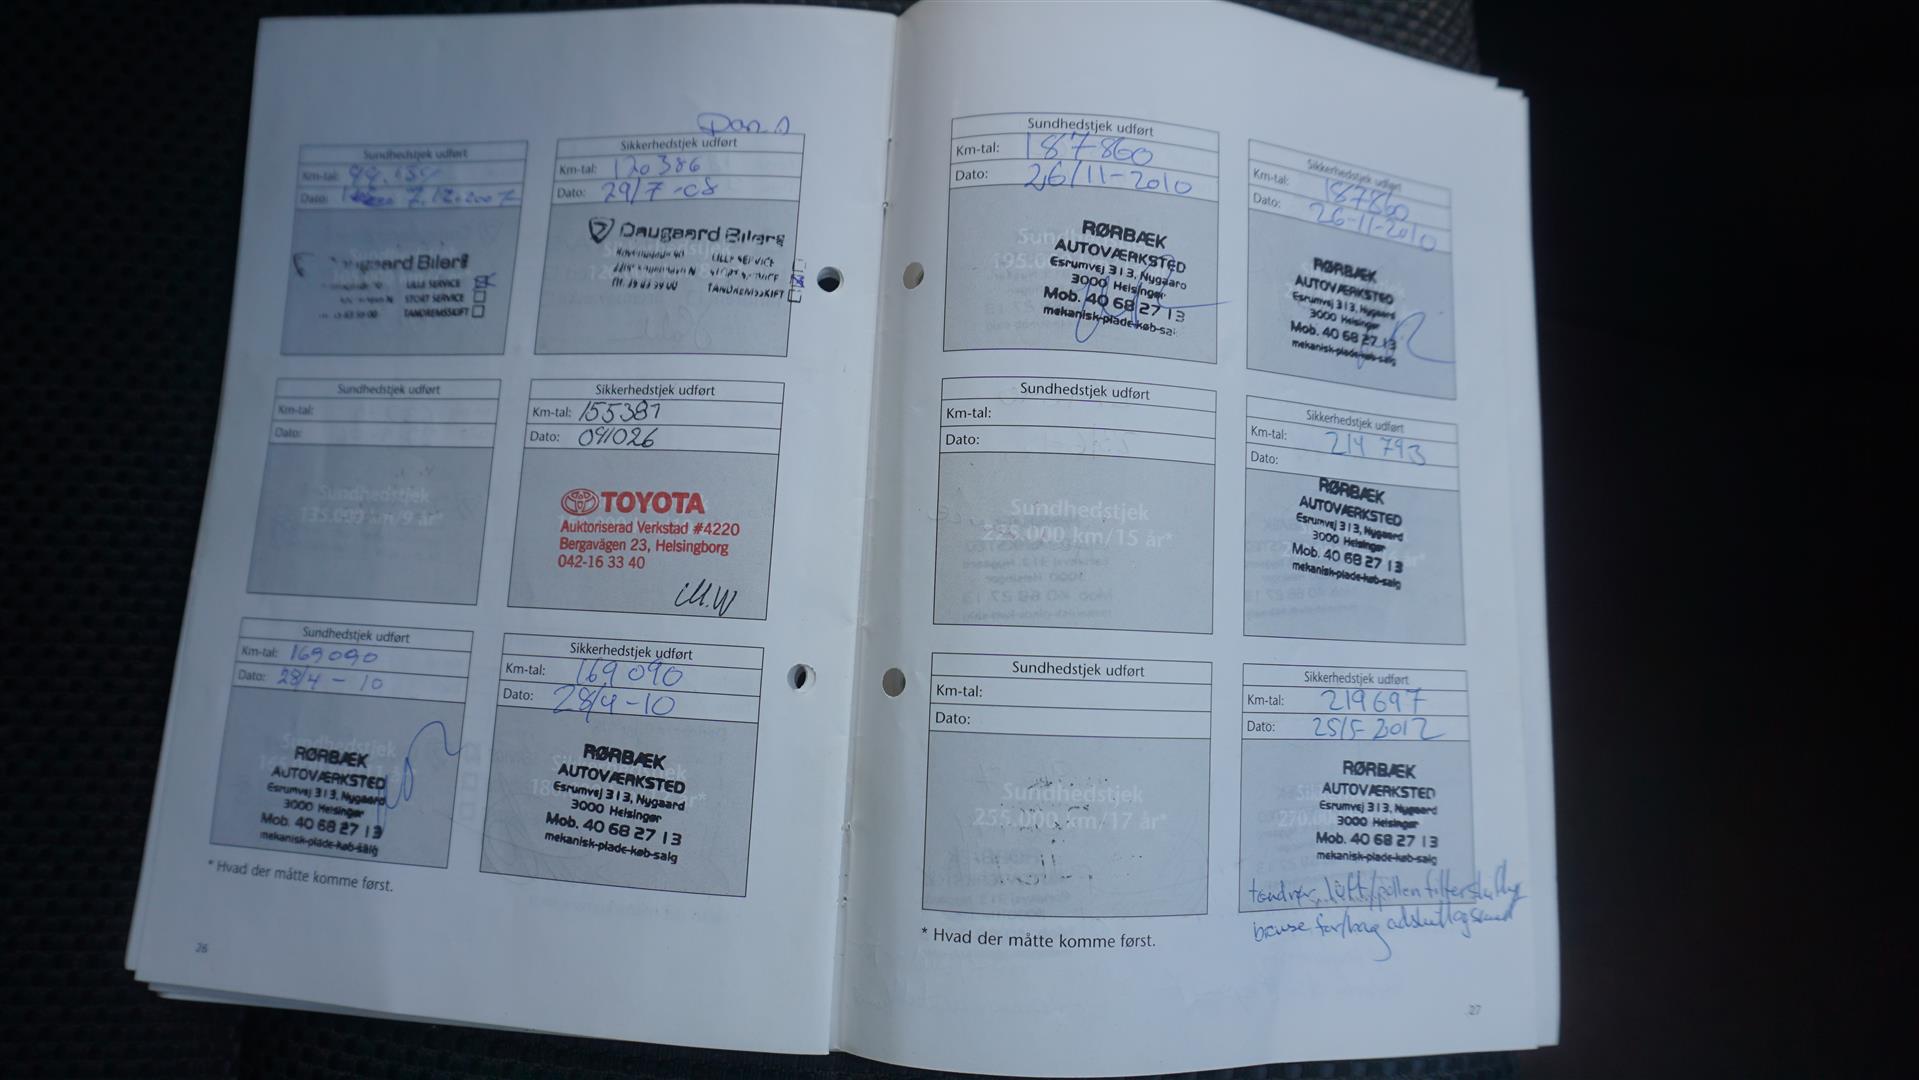 Sundhedstjek udført
Km-tal:
Dato: 7.12.2007
Daugaard Bilers
LILLE SERVICE
STORT SERVICE
TANDREMSSKIFT
Sikkerhedstjek udført
Km-tal: 120386
Dato: 29/7-08
Daugaard Bilers
LILLE SERVICE
STORT SERVICE
TANDREMSSKIFT
Sundhedstjek udført
Km-tal:
Dato:
Sundhedstjek
135.000 km/9 år*
Sikkerhedstjek udført
Km-tal: 155387
Dato: 091026
TOYOTA
Auktoriserad Verkstad #4220
Bergavägen 23, Helsingborg
042-16 33 40
M.W
Sundhedstjek udført
Km-tal: 169090
Dato: 28/4-10
Sundhedstjek
RØRBÆK
AUTOVÆRKSTED
Esrumvej 313, Nygaard
3000 Helsingør
Mob. 40 68 27 13
mekanisk-plade-køb-salg
Sikkerhedstjek udført
Km-tal: 169090
Dato: 28/4-10
RØRBÆK
AUTOVÆRKSTED
Esrumvej 313, Nygaard
3000 Helsingør
Mob. 40 68 27 13
mekanisk-plade-køb-salg
* Hvad der måtte komme først.
26
Sundhedstjek udført
Km-tal: 187860
Dato: 26/11-2010
RØRBÆK
AUTOVÆRKSTED
Esrumvej 313, Nygaard
3000 Helsingør
Mob. 40 68 27 13
mekanisk-plade-køb-sal
Sikkerhedstjek udført
Km-tal: 187860
Dato: 26-11-2010
RØRBÆK
AUTOVÆRKSTED
Esrumvej 313, Nygaard
3000 Helsingør
Mob. 40 68 27 13
mekanisk-plade-køb-salg
Sundhedstjek udført
Km-tal:
Dato:
Sundhedstjek
225.000 km/15 år*
Sikkerhedstjek udført
Km-tal: 214793
Dato:
RØRBÆK
AUTOVÆRKSTED
Esrumvej 313, Nygaard
3000 Helsingør
Mob. 40 68 27 13
mekanisk-plade-køb-salg
Sundhedstjek udført
Km-tal:
Dato:
Sundhedstjek
255.000 km/17 år*
Sikkerhedstjek udført
Km-tal: 219697
Dato: 25/5-2012
RØRBÆK
AUTOVÆRKSTED
Esrumvej 313, Nygaard
3000 Helsingør
Mob. 40 68 27 13
mekanisk-plade-køb-salg
luft/pollenfilter
for/bag
* Hvad der måtte komme først.
27